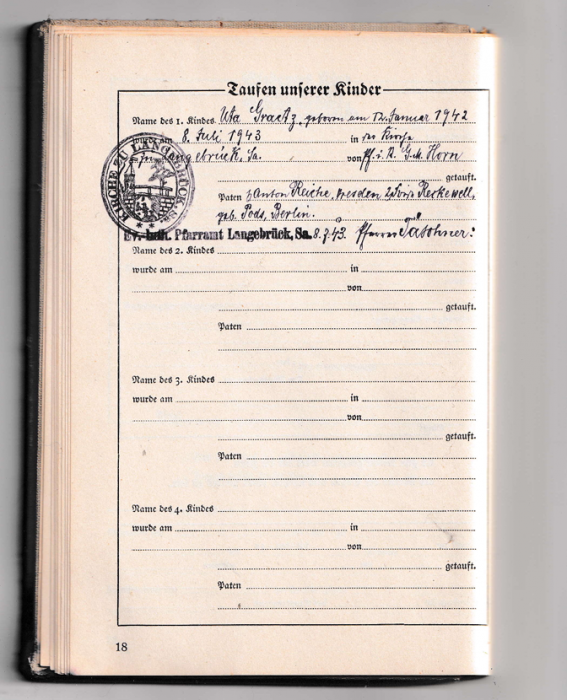 Taufen unserer Kinder
Name des 1. Kindes Uta Graetz, geboren am 12. Januar 1942
wurde am 8. Juli 1943 in der Kirche
zu Langebrück, Sa. von Pf. i. R. Horn
getauft.
Paten Anton Reiche, Dresden,
geb. Berlin.
KIRCHE ZU LANGEBRÜCK
Ev.-luth. Pfarramt Langebrück, Sa. 8.7.43. Pfarrer
Name des 2. Kindes
wurde am in
von
getauft.
Paten
Name des 3. Kindes
wurde am in
von
getauft.
Paten
Name des 4. Kindes
wurde am in
von
getauft.
Paten
18